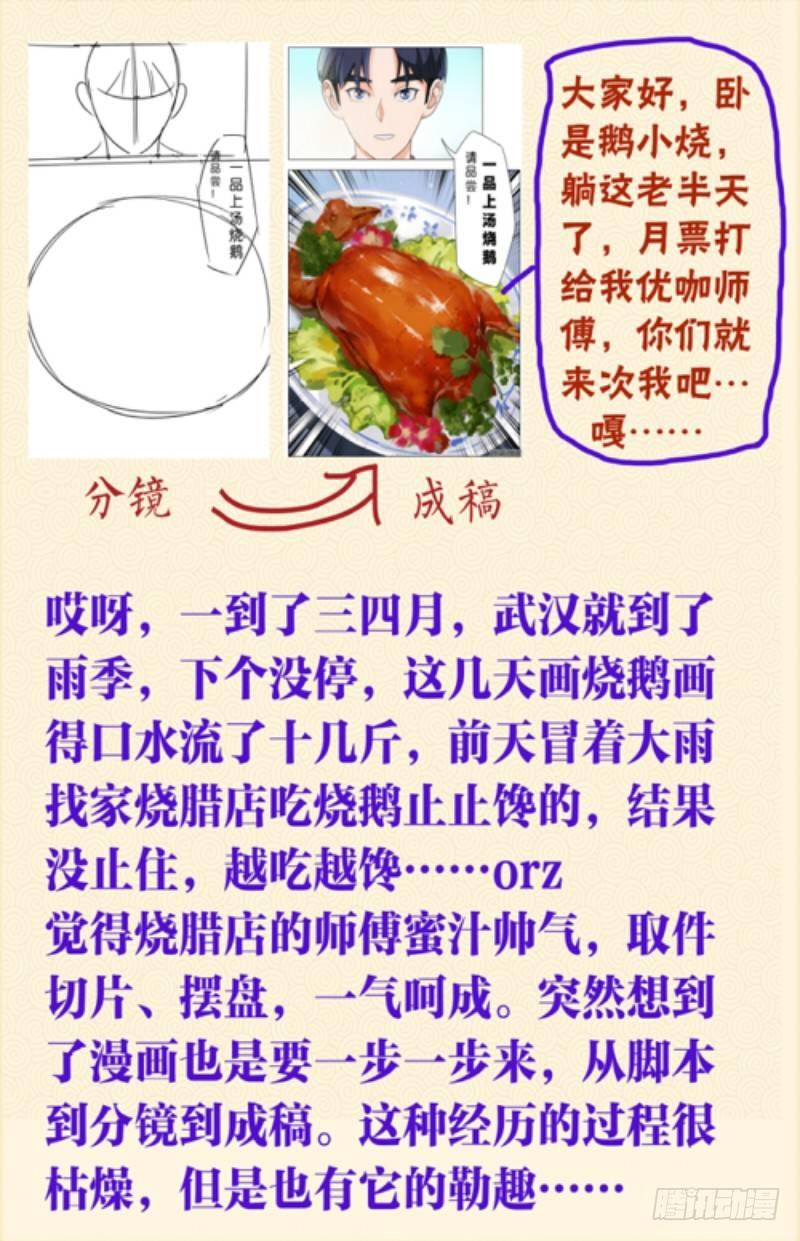 请品尝！
一品上汤烧鹅
请品尝！
一品上汤烧鹅
大家好，卧
是鹅小烧，
躺这老半天
了，月票打
给我优咖师
傅，你们就
来次我吧…
嘎……
分镜
成稿
哎呀，一到了三四月，武汉就到了
雨季，下个没停，这几天画烧鹅画
得口水流了十几斤，前天冒着大雨
找家烧腊店吃烧鹅止止馋的，结果
没止住，越吃越馋……orz
觉得烧腊店的师傅蜜汁帅气，取件
切片、摆盘，一气呵成。突然想到
了漫画也是要一步一步来，从脚本
到分镜到成稿。这种经历的过程很
枯燥，但是也有它的勒趣……
腾讯动漫